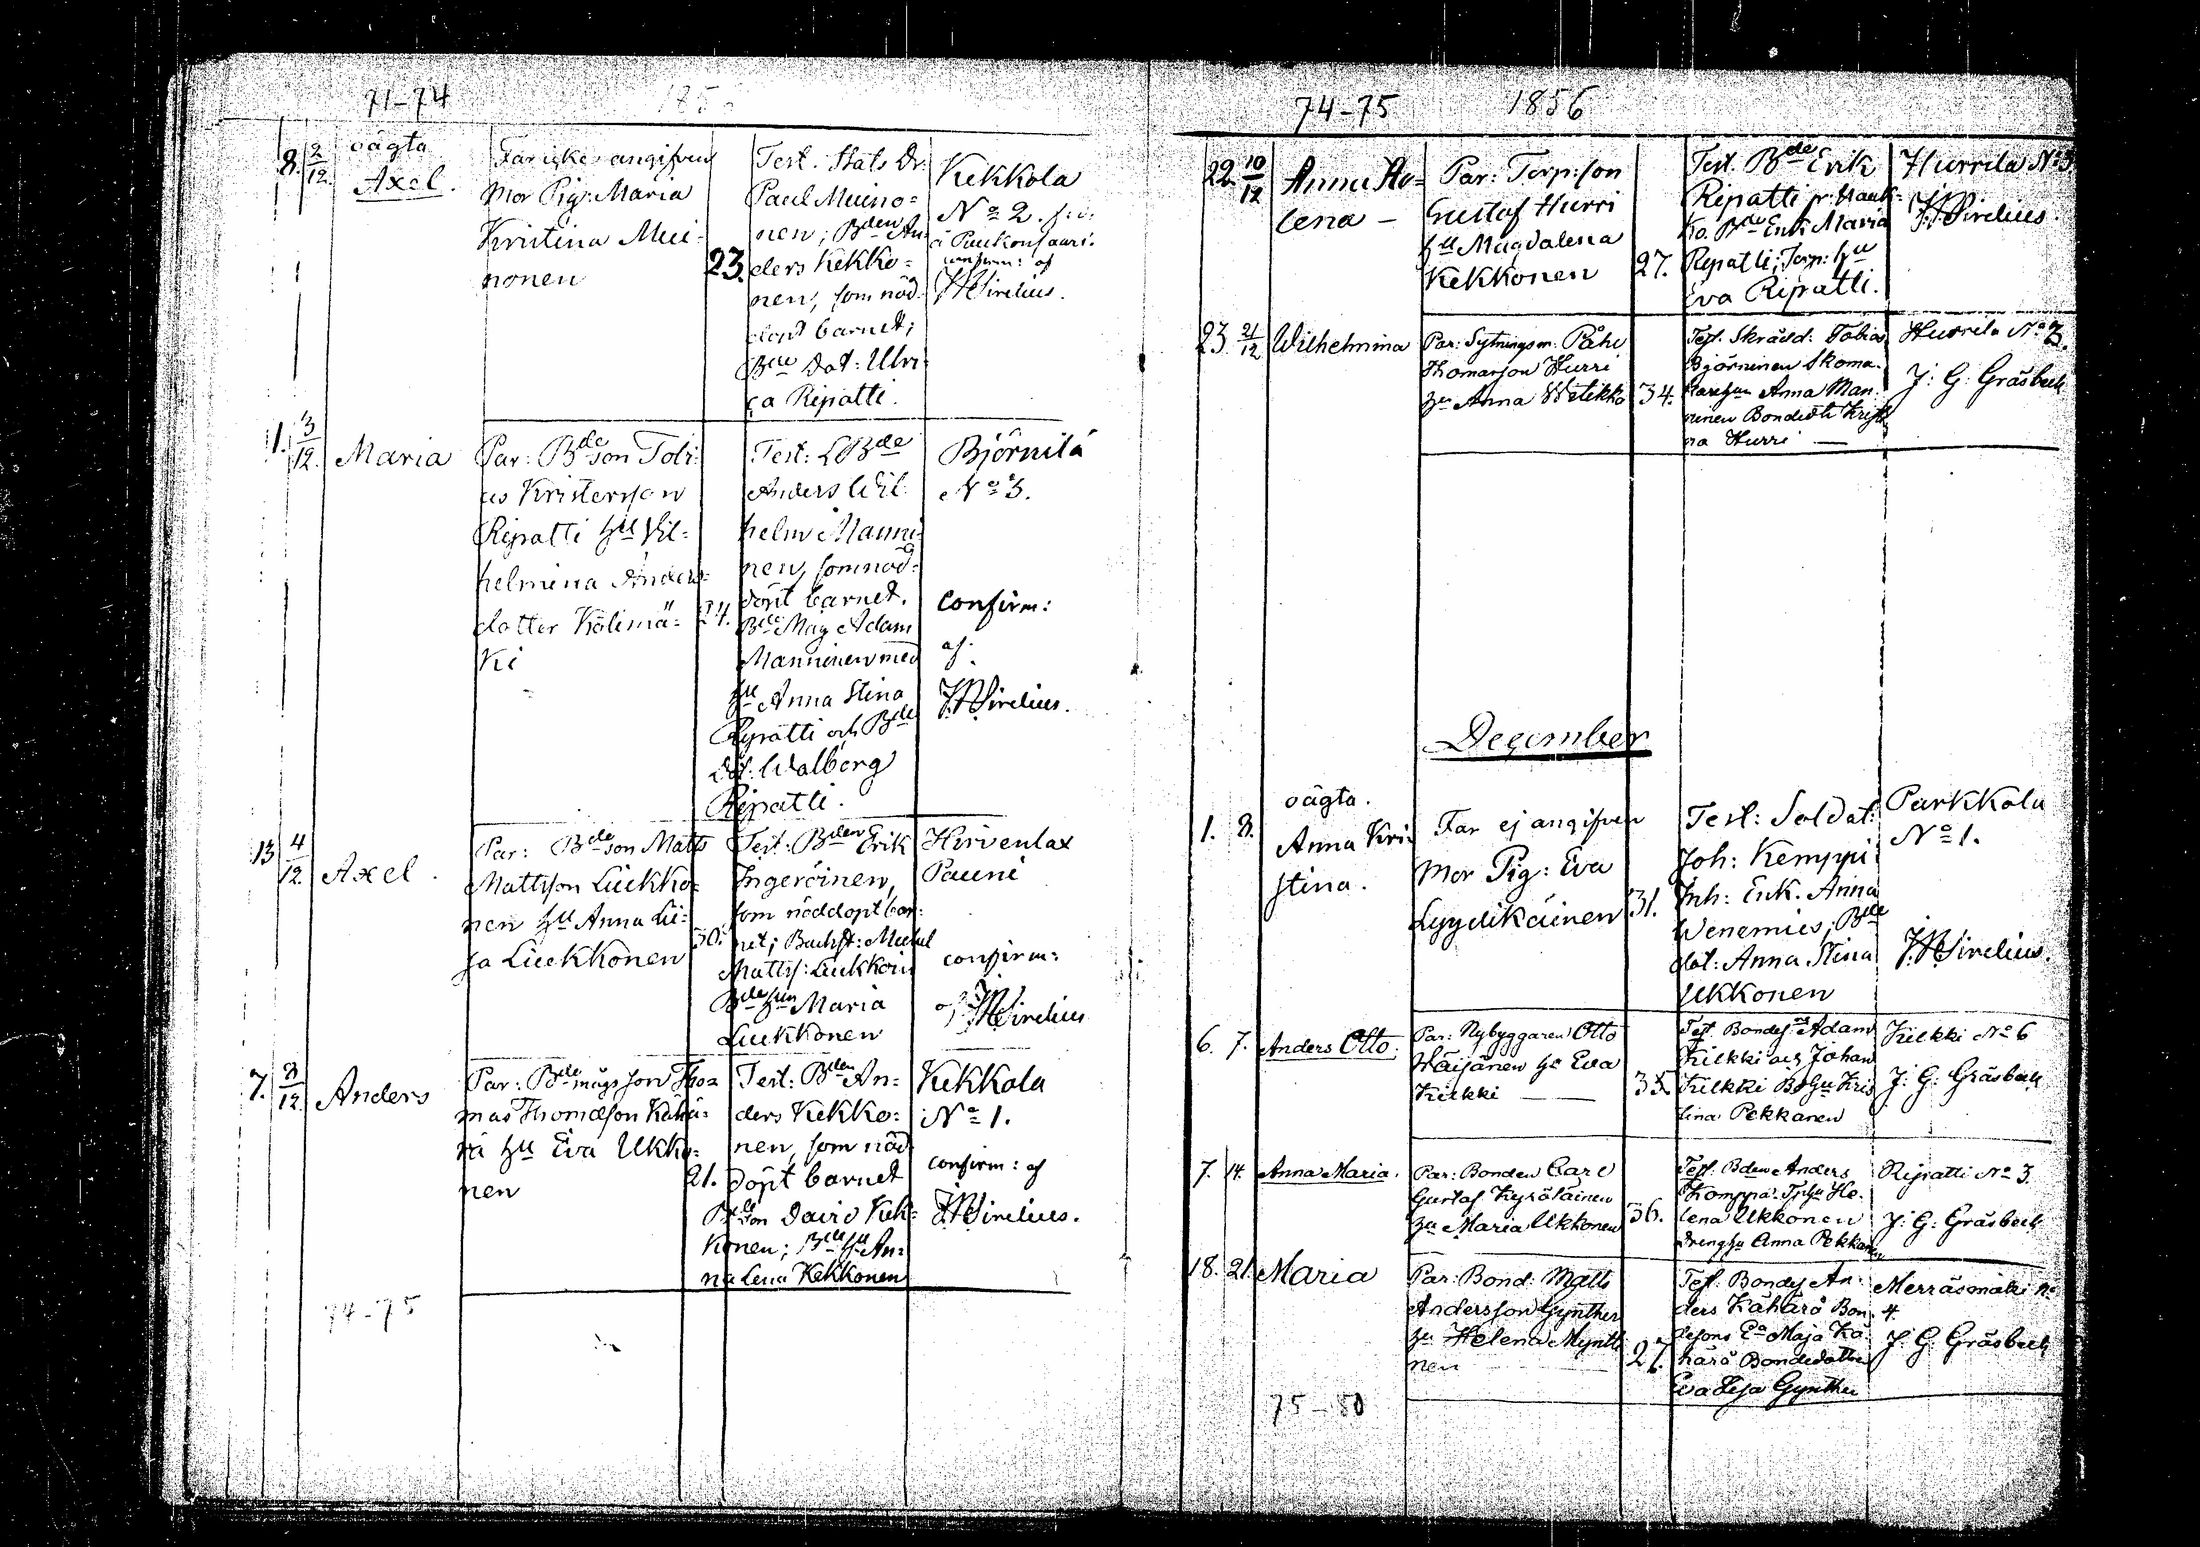 71-74 185
8. 2/12. oägta
Axel.
Far icke angifven
Mor Pig: Maria
Kristina Mui-
nonen
23.
Test. Stats Dr.
Paul Muino=
nen; Bden An-
ders Kekko=
nen, som nöd
döpt barnet;
Bde Dot: Ulri-
ca Ripatti.
Kekkola
No 2. f: i:
å Puukonsaari.
confirm: af
JHSirelius.
1. 3/12. Maria
Par: Bde son Tobi-
as Kristersson
Ripatti hu Vil=
helmina Anders=
dotter Kolimä=
ki
24.
Test: LBde
Anders Wil-
helm Manni-
nen, som nöd=
döpt barnet.
Bde Mag Adam
Manninen med
hu Anna Stina
Ripatti och Bde
Dot: Walborg
Ripatti.
Björnilä
No 3.
confirm:
af:
JHSirelius.
13 4/12. Axel.
Par: Bde son Matts
Mattsson Liukko=
nen hu Anna Li=
sa Liukkonen
30.
Test: Bden Erik
Ingeroinen,
som nöddöpt bar:
net; Backst: Michel
Mattss: Liukkoin
Bdes hu Maria
Liukkonen
Hirvenlax
Pauni
confirm:
af JHSirelius
7. 8/12 Anders
Par: Bde mågs son Tho=
mas Thomasson Kähä=
rä hu Eva Ukko=
nen
21.
Test: Bden An=
ders Kekko=
nen, som nöd
döpt barnet
Bde son David Kek=
konen; Bde hu An=
na Lena Kekkonen
Kekkola
No 1.
confirm: af
JHSirelius.
74-75
74-75 1856
22. 10/12 Anna He=
lena -
Par: Torp: son
Gustaf Hurri
hu Magdalena
Kekkonen
27.
Test. Bde Erik
Ripatti fr: Hauk=
ka. Bde Enk Maria
Ripatti; Torp: hu
Eva Ripatti.
Hurrila No 3
JHSirelius.
23. 21/12 Wilhelmina
Par: Sytningsm: Påhl
Thomasson Hurri
hu Anna Wetikko
34.
Test. Skrädd: Tobias
Björninen Skoma-
kare hun Anna Man-
ninen Bondedtr Kristi
na Hurri -
Hurrila No 3.
J: G: Gråsbeck
December
1. 8. oägta.
Anna Kri-
stina.
Far ej angifven
Mor Pig: Eva
Lyydikäinen
31.
Test: Soldat:
Joh: Kemppi;
Inh: Enk. Anna
Wenemies; Bde
dot: Anna Stina
Ukkonen
Parkkola
No 1.
JHSirelius.
6. 7. Anders Otto.
Par: Nybyggaren Otto
Häisänen hu Eva
Kilkki -
35.
Test. Bondes Adam
Kilkki och Johan
Kilkki Bds hu Kris
tina Pekkanen
Kilkki No 6
J: G: Gråsbeck
7. 14. Anna Maria.
Par: Bonden Carl
Gustaf Kyröläinen
hu Maria Ukkonen
36.
Test. Bden Anders
Komppa. Tphu He-
lena Ukkonen
Drenghu Anna Pekkanen
Ripatti No 3.
J: G: Gråsbeck
18. 21. Maria
Par: Bond: Matts
Andersson Gynther
hu Helena Myntti
nen
27.
Test. Bondes An-
ders Kähärä Bon-
desons Ea Maja Kä-
härä Bondedotter
Eva Lisa Gynther
Merräsmäki No
4.
J: G: Gråsbeck
75-80